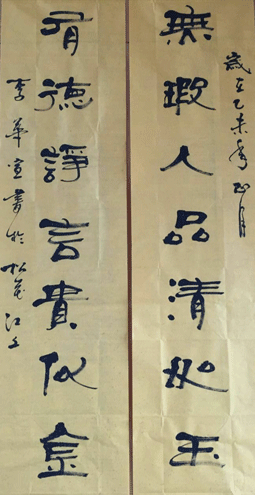 歲在乙未年正月
無瑕人品清如玉
有德諍言貴似金
李華宣書於松花江上